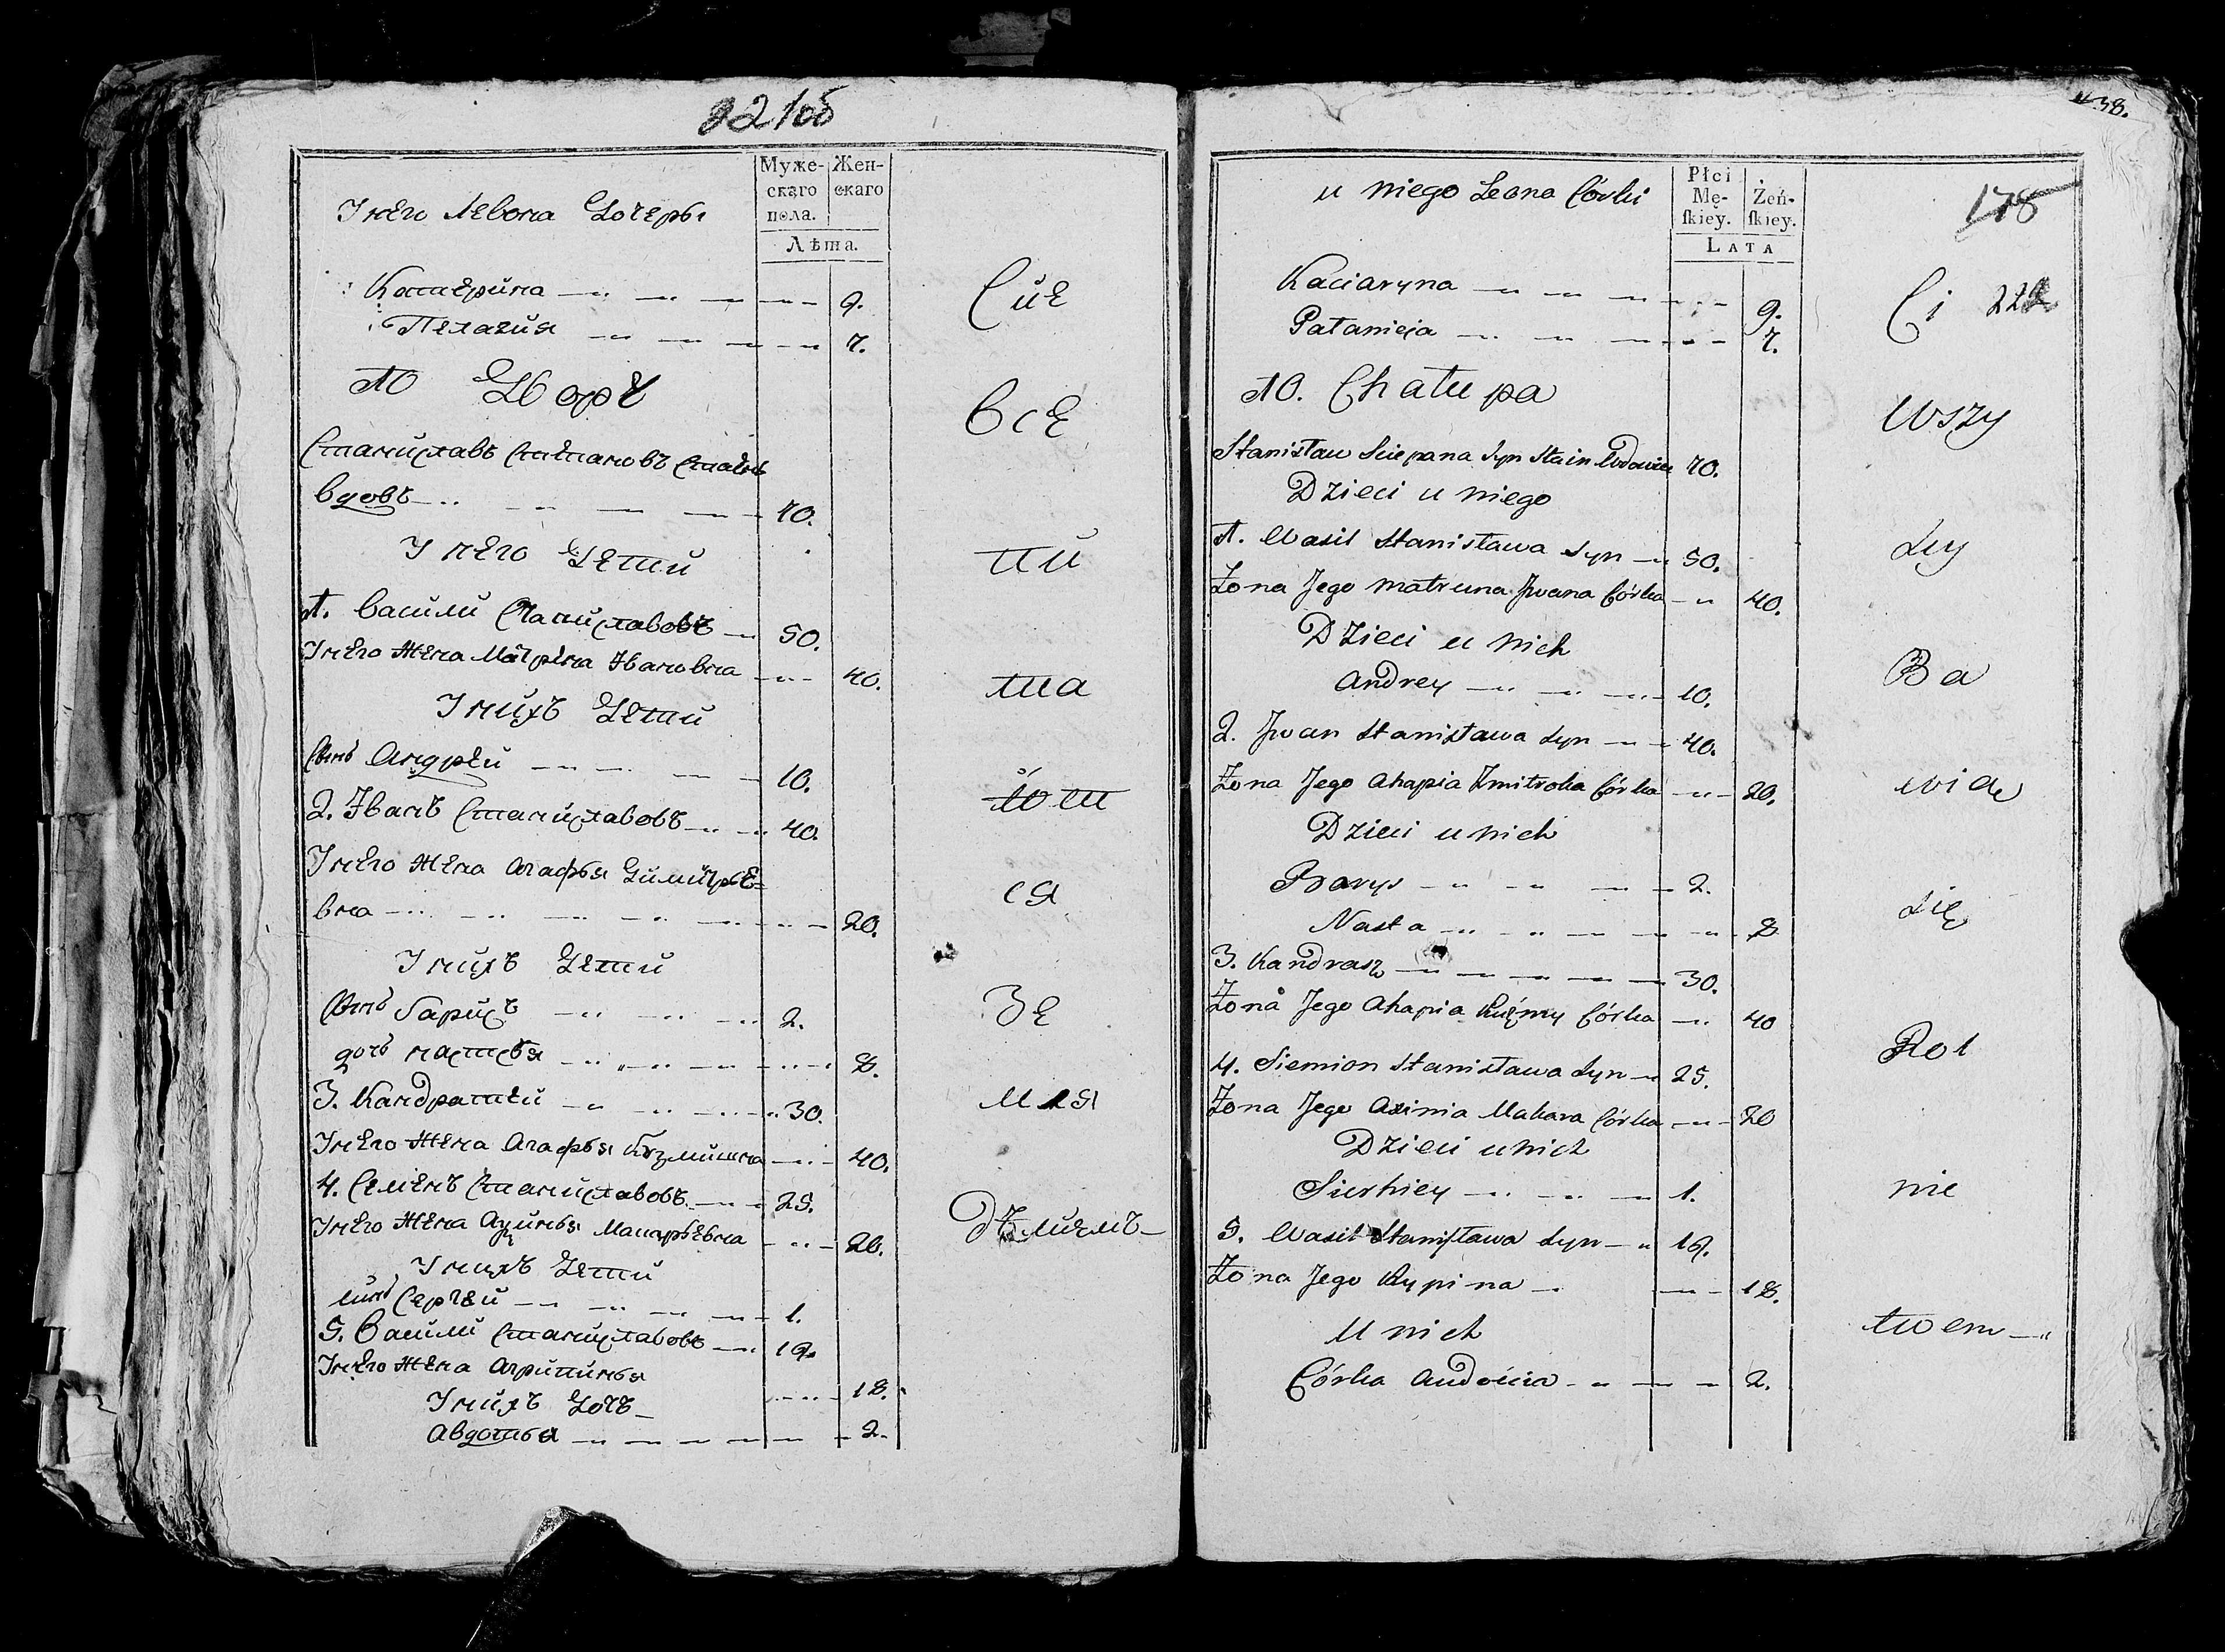 221об
Муже-
скаго
пола.
Жен-
скаго
Лѣта.
У него Левона Дочеры
Катерина 9.
Пелагия 7.
10 Дворъ
Станиславъ Стѣпановъ
вдовъ 70.
У него Дети
1. Васили Станиславовъ 50.
У него жена Матрена Ивановна 40.
У нихъ Дети
сынъ Андрей 10.
2. Иванъ Станиславовъ 40.
У него жена Агафья Димитрье-
вна 20.
У нихъ Дети
сынъ Барисъ 2.
дочь Настсья 8.
3. Кандратей 30.
У него жена Агафья Кузминична 40.
4. Семенъ Станиславовъ 25.
У него жена Аксинья Макарьевна 20.
У нихъ Дети
сынъ Сергей 1.
5. Васили Станиславовъ 19.
У него жена Агрипинья 18.
У нихъ Дочь
Авдотья 2.
Сие
все
пи
та
ют
ся
зе
мля
дѣлиемъ
438.
178
222
u niego Leona Córki
Płci
Mę-
skiey.
Żeń-
skiey.
LATA
Kaciaryna 9.
Pałanieja 7.
10. Chałupa
Stanisław Sciepana syn Stain Wdowiec 70.
Dzieci u niego
1. Wasil Stanisława syn 50.
Żona Jego Matruna Jwana Córka 40.
Dzieci u nich
Andrey 10.
2. Jwan Stanisława syn 40.
Żona Jego Ahapia Zmitroka Córka 20.
Dzieci u nich
Barys 2.
Nasta 8
3. Kandrasz 30.
Żona Jego Ahapia Kuźmy Córka 40
4. Siemion Stanisława syn 25.
Żona Jego Axinia Makara Córka 20
Dzieci u nich
Sierhiey 1.
5. Wasil Stanisława syn 19.
Żona Jego Rypina 18.
U nich
Córka Audocia 2.
Ci
wszy
scy
Ba
wią
się
Rol
nic
twem